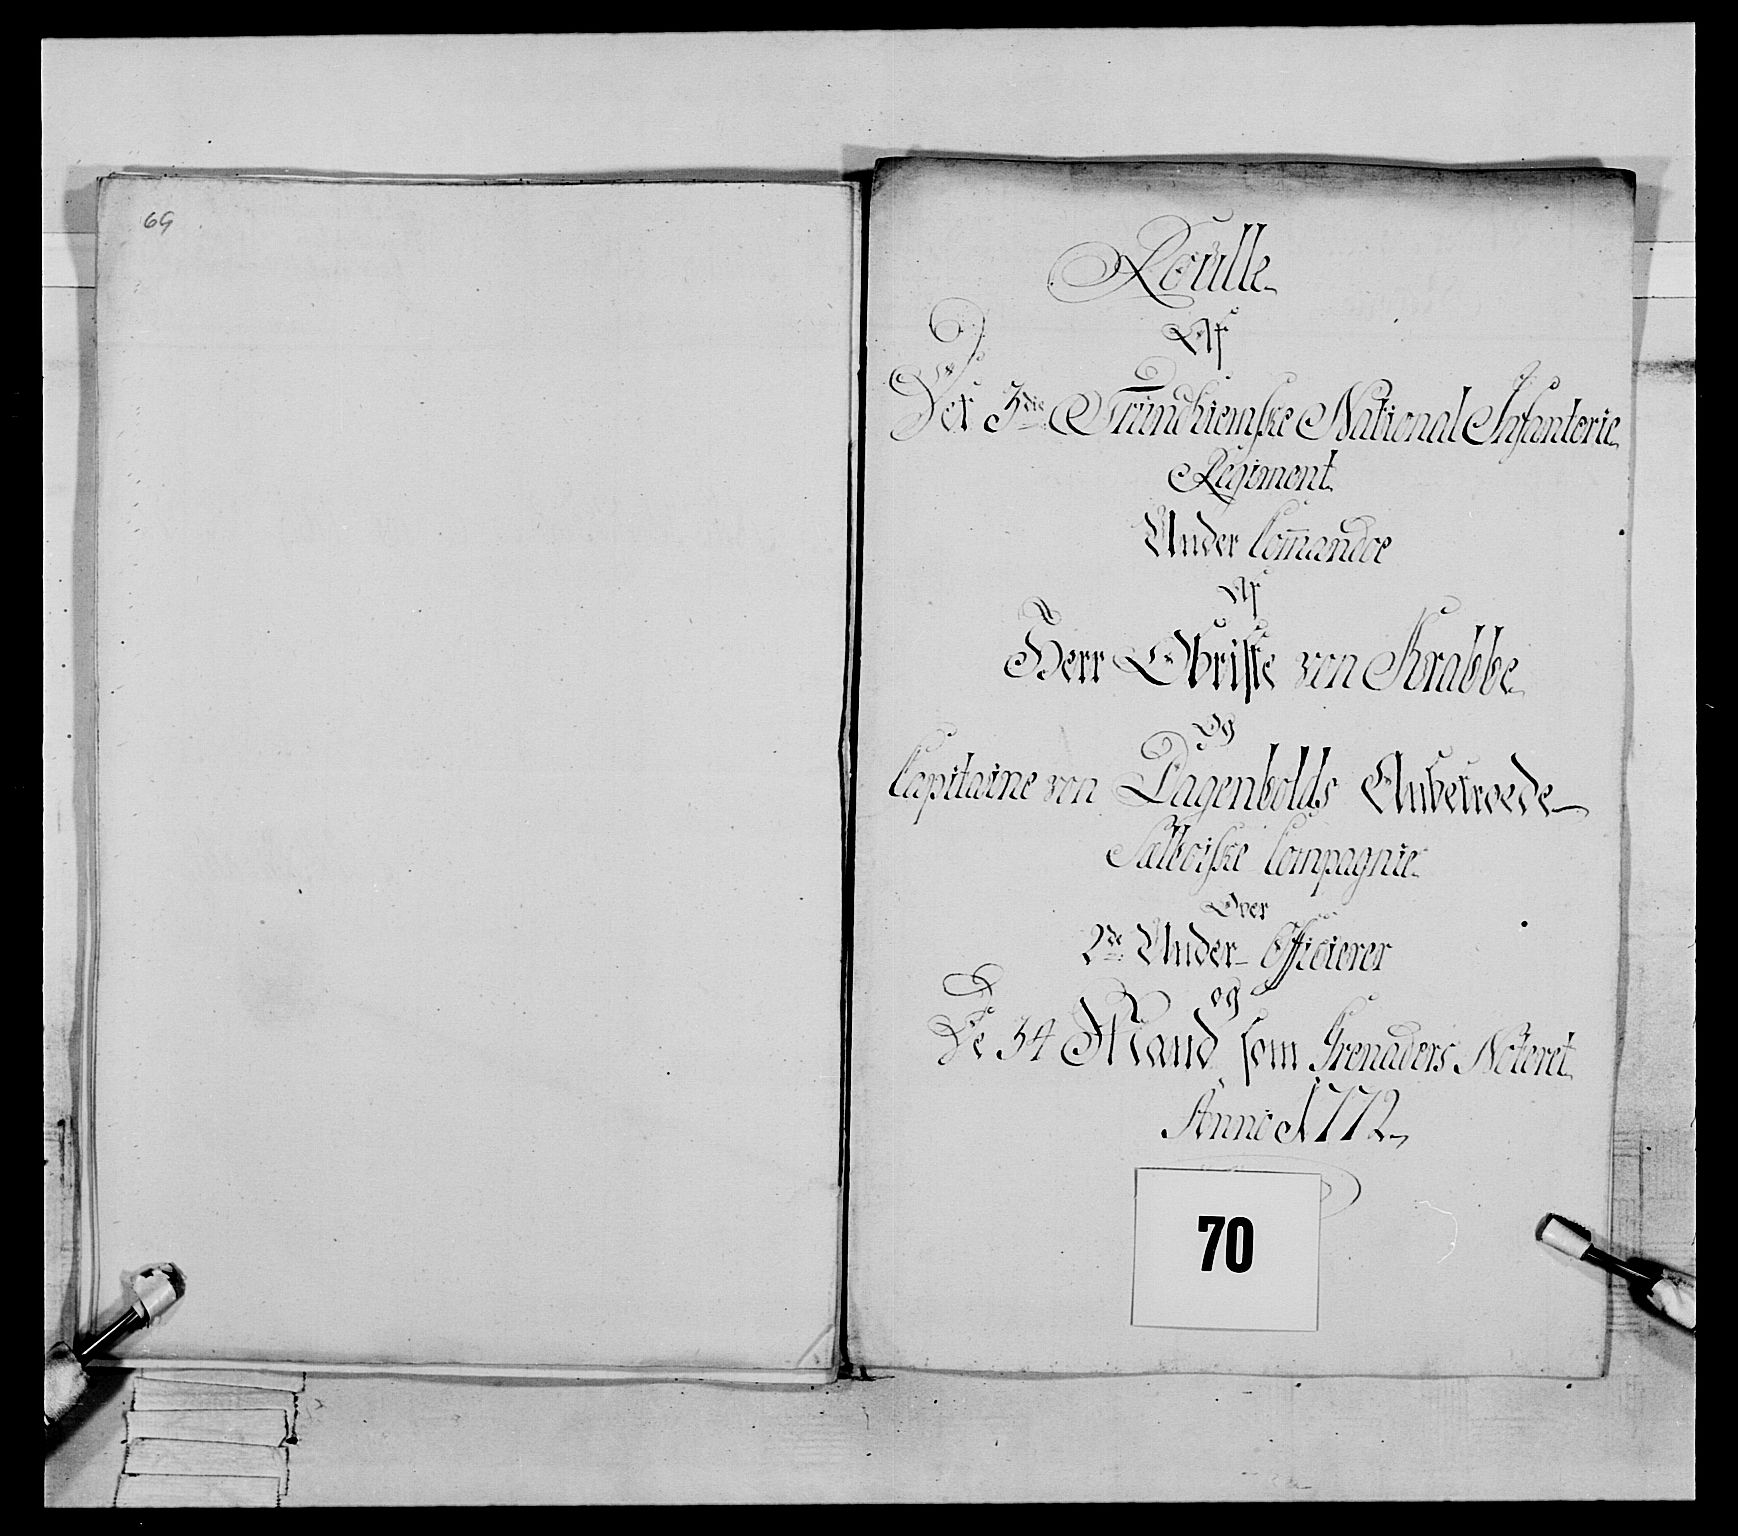 69
Roulle
Af
Det 3die Trundhiemske National Infanterie
Regiment
Under Com̅andoe
Af
Herr Obriste von Krabbe
Og
Capitaine von Dagenbolds Anbetroede
Salboiske Compagnie
Over
2de Under Officierer
og
De 34 Mand som Grenaders Noteret
Anno 1772
70